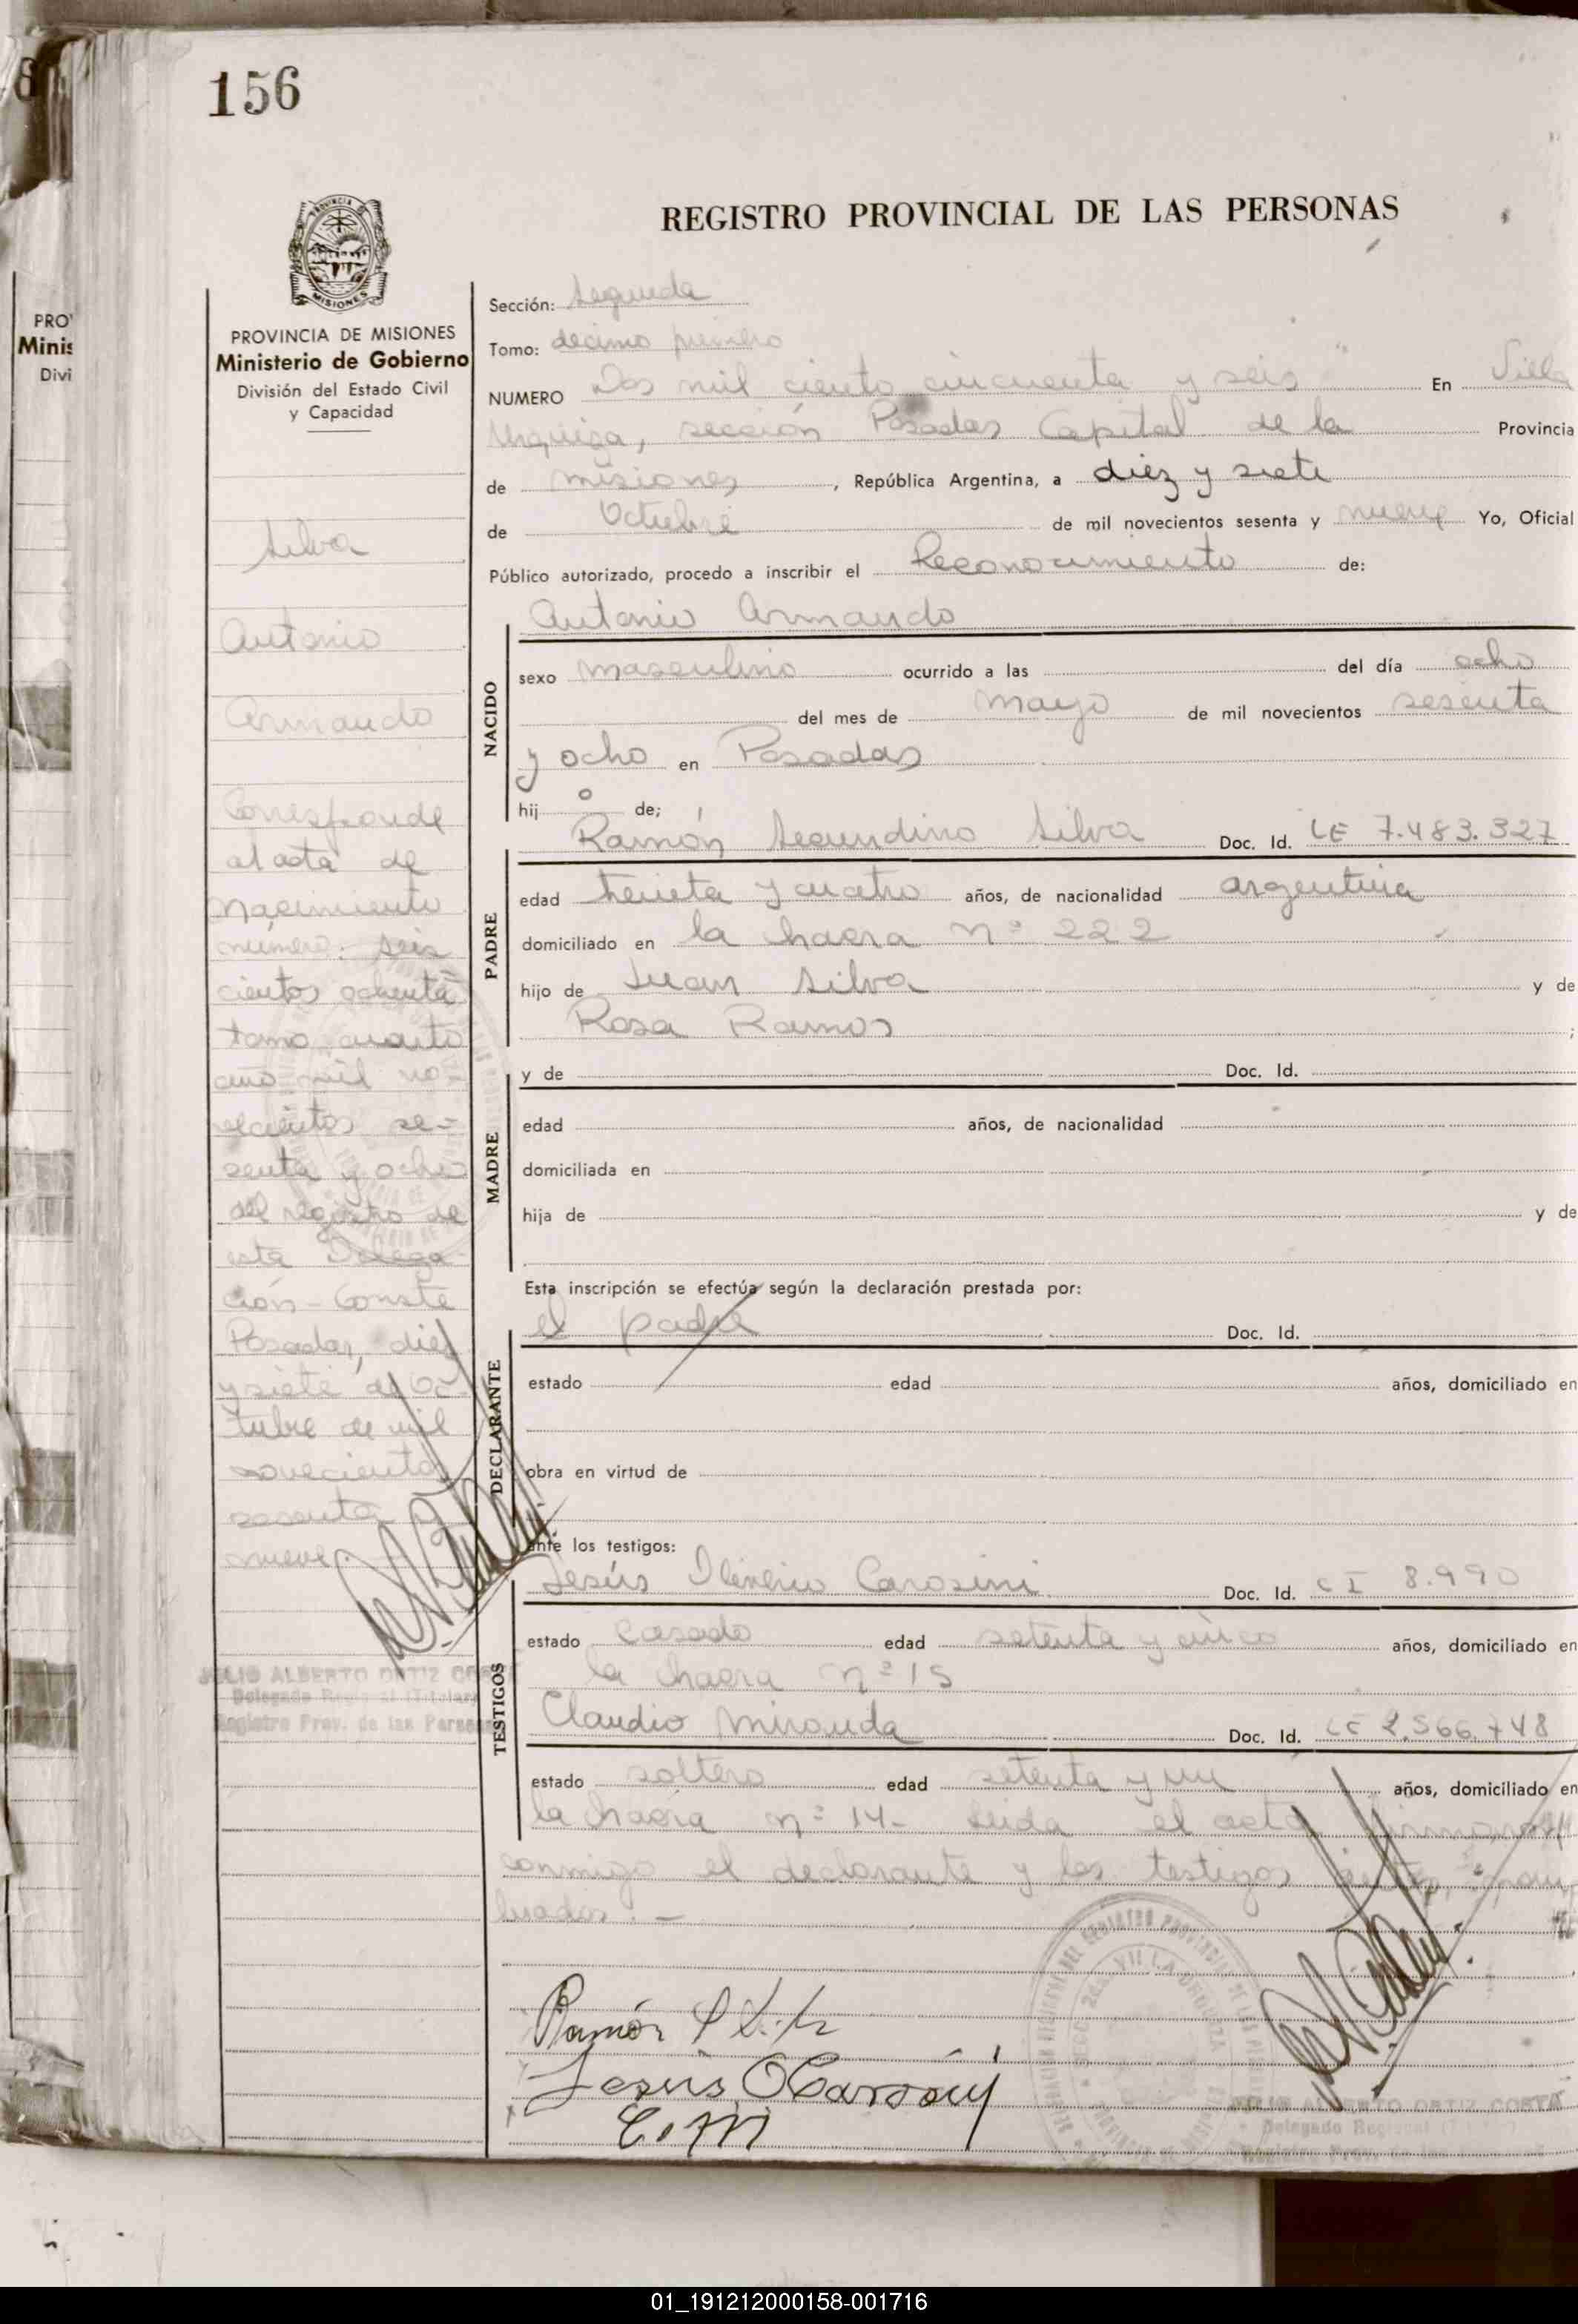 156
REGISTRO PROVINCIAL DE LAS PERSONAS
PROVINCIA DE MISIONES
Ministerio de Gobierno
División del Estado Civil
y Capacidad
Silva
Antonio
Armando
Corresponde
al acta de
Nacimiento
número: seis
cientos ochenta
tomo cuarto
año mil no-
vecientos se-
senta y ocho
del registro de
esta Delega-
ción - Conste
Posadas, diez
y siete de Oc-
tubre de mil
novecientos
sesenta y
nueve.
JULIO ALBERTO ORTIZ COSTA
Delegado Regional (Titular)
Registro Prov. de las Personas
Sección: Segunda
Tomo: décimo primero
NUMERO Dos mil ciento cincuenta y seis En Villa
Urquiza, sección Posadas Capital de la Provincia
de misiones, República Argentina, a diez y siete
de Octubre de mil novecientos sesenta y nueve Yo, Oficial
Público autorizado, procedo a inscribir el Reconocimiento de:
NACIDO
Antonio Armando
sexo masculino ocurrido a las del día ocho
del mes de mayo de mil novecientos sesenta
y ocho en Posadas
hijo de;
PADRE
Ramón Secundino Silva Doc. Id. LE 7.483.327
edad treinta y cuatro años, de nacionalidad argentina
domiciliado en la chacra nº 222
hijo de Juan Silva y de
Rosa Ramos ;
MADRE
y de Doc. Id.
edad años, de nacionalidad
domiciliada en
hija de y de
Esta inscripción se efectúa según la declaración prestada por:
DECLARANTE
el padre Doc. Id.
estado edad años, domiciliado en
obra en virtud de
ante los testigos:
TESTIGOS
Jesús Carosini Doc. Id. CI 8.990
estado casado edad setenta y cinco años, domiciliado en
la chacra nº 15
Claudio Miranda Doc. Id. LE 2.566.748
estado soltero edad setenta y un años, domiciliado en
la chacra nº 14- Leida el acta firman
conmigo el declarante y los testigos
Ramón S Silva
Jesús O Carosini
C.M
JULIO ALBERTO ORTIZ COSTA
Delegado Regional
PRO
Minis
Divi
01_191212000158-001716